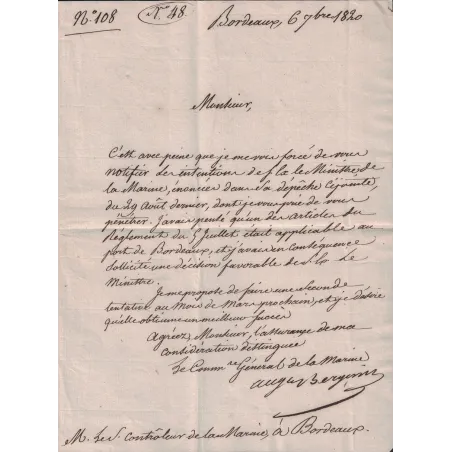 N° 108
N° 48
Bordeaux, 6 7bre 1820
Monsieur,
C'est avec peine que je me vois forcé de vous
notifier les intentions de S. Ex. le Ministre de
la Marine, énoncées dans sa dépêche
du 29 août dernier, dont je vous prie de vous
pénétrer. J'avais pensé qu'un des articles du
Règlement du 5 Juillet était applicable au
port de Bordeaux, et j'avais en conséquence
sollicité une décision favorable de S. Ex. Le
Ministre.
Je me propose de faire une seconde
tentative au Mois de Mars prochain, et je désire
qu'elle obtienne un meilleur succès
Agréez, Monsieur, l'assurance de ma
considération distinguée
Le Commre Général de la Marine
M. Le Sr. Contrôleur de la Marine, à Bordeaux.